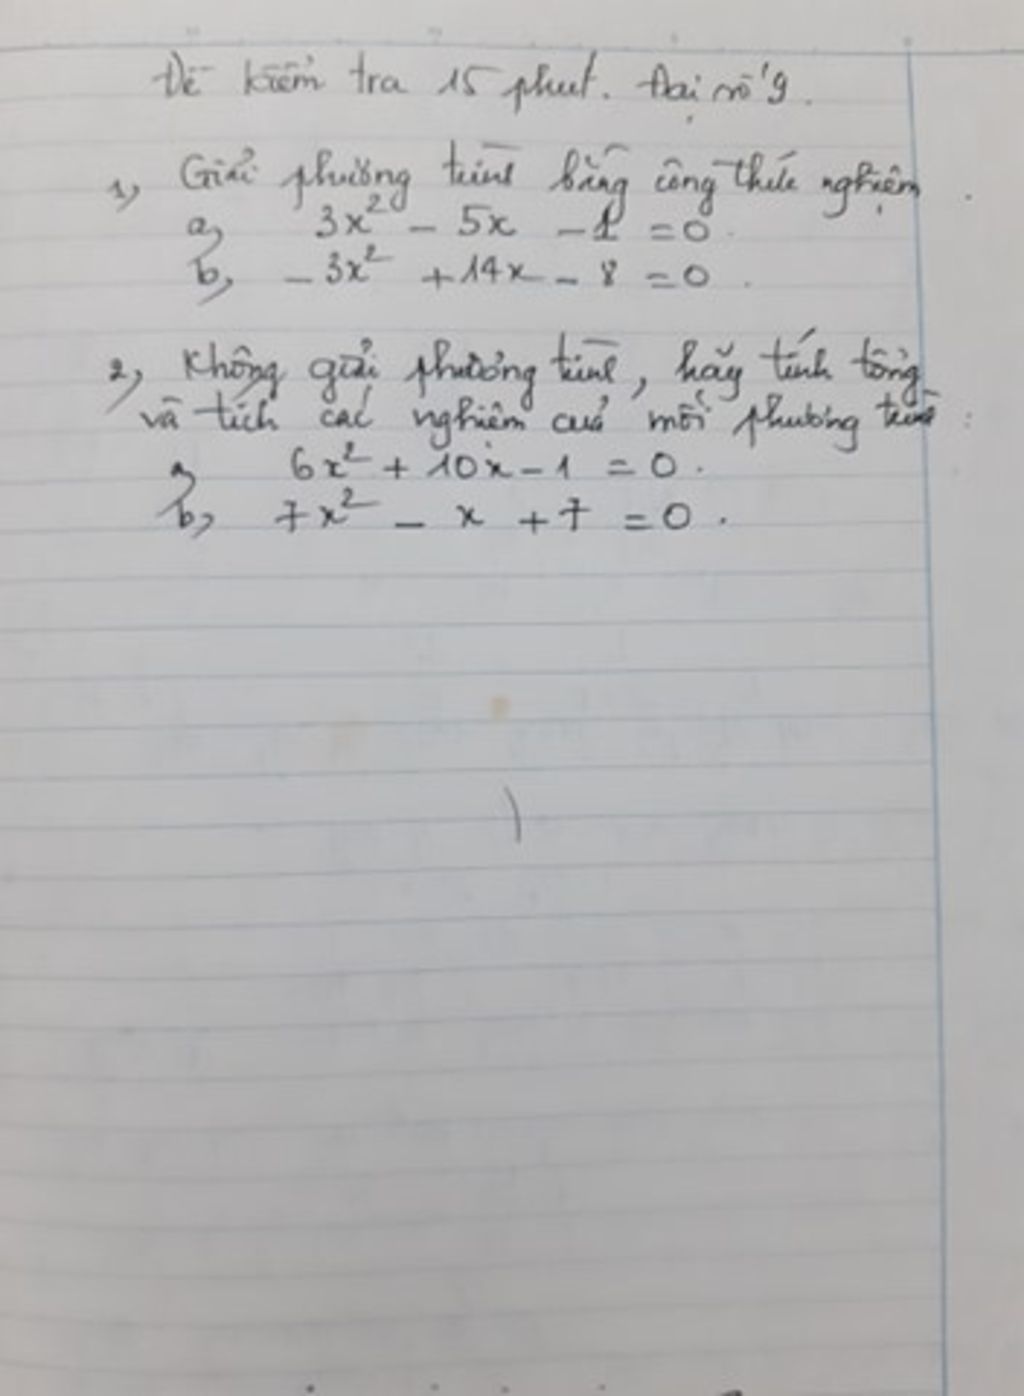 Đề kiểm tra 15 phút. Đại số 9.
1, Giải phương trình bằng công thức nghiệm.
a, 3x² - 5x - 1 = 0.
b, - 3x² + 14x - 8 = 0.
2, Không giải phương trình, hãy tính tổng
và tích các nghiệm của mỗi phương trình:
a, 6x² + 10x - 1 = 0.
b, 7x² - x + 7 = 0.